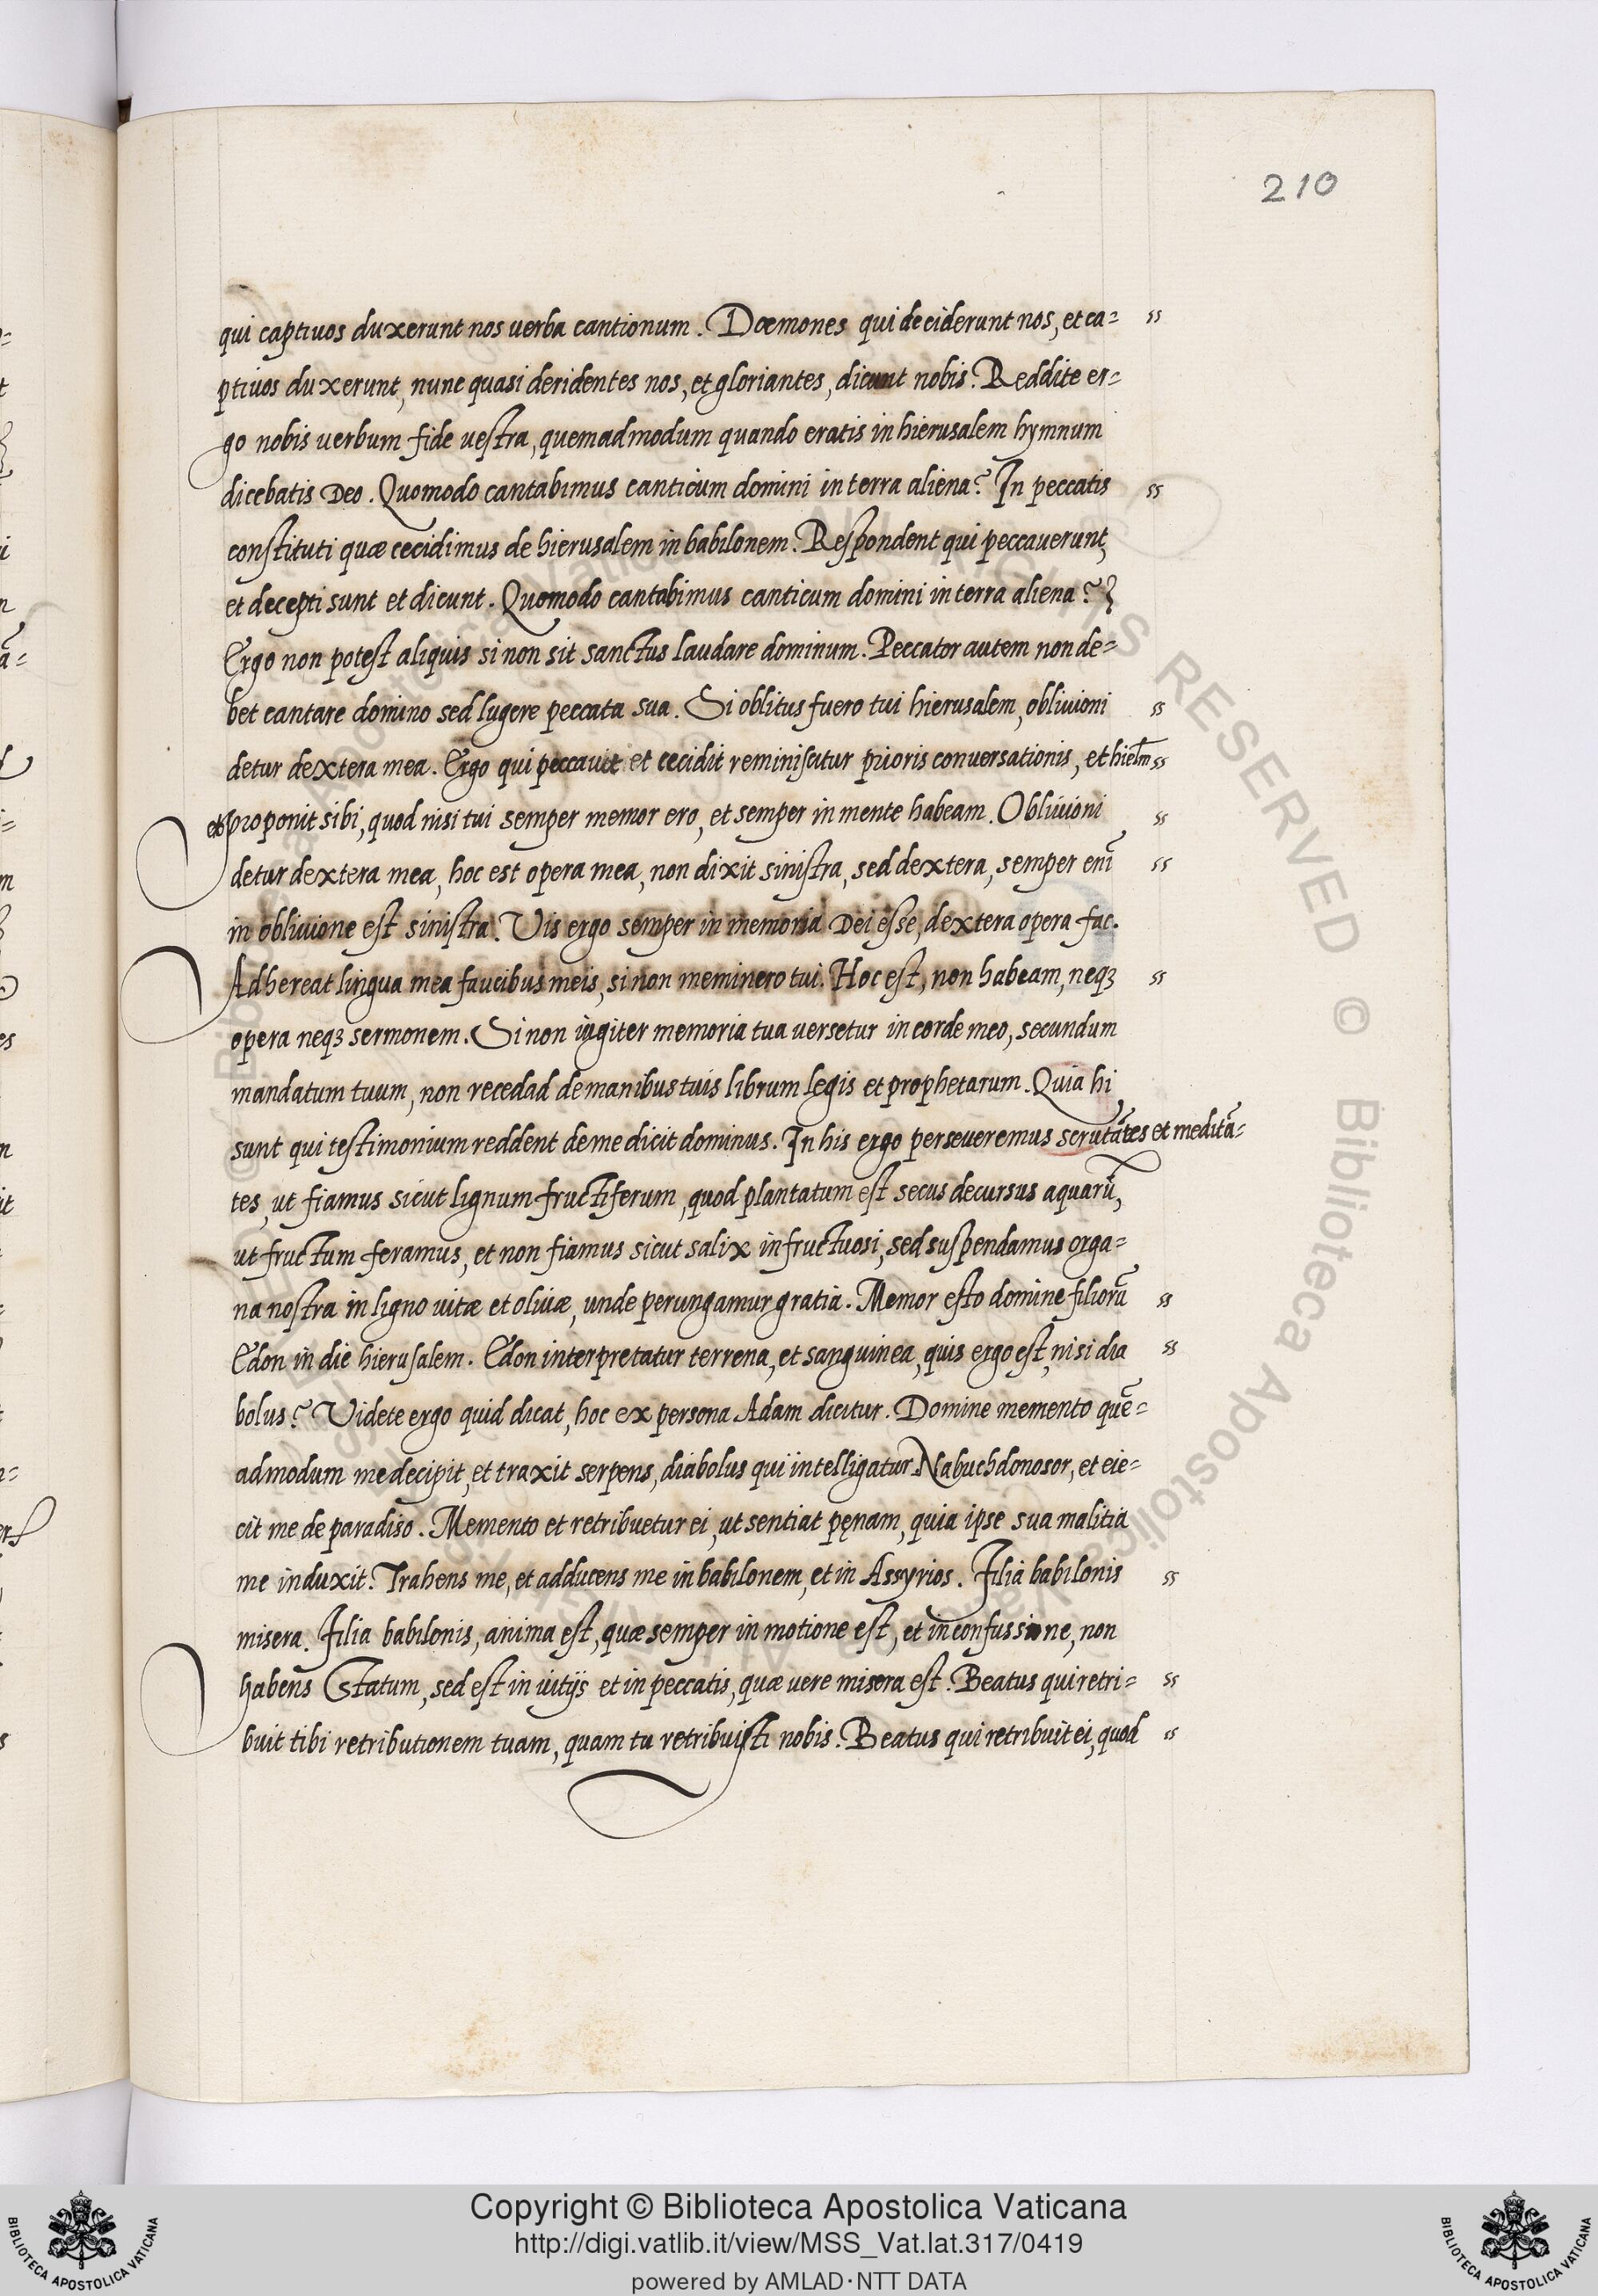 210
qui captivos duxerunt nos verba cantionum. Dæmones qui deciderunt nos, et ca= ss
ptivos duxerunt, nunc quasi deridentes nos, et gloriantes, dicunt nobis. Reddite er=
go nobis verbum fide vestra, quemadmodum quando eratis in hierusalem hymnum
dicebatis Deo. Quomodo cantabimus canticum domini in terra aliena? In peccatis ss
constituti quæ cecidimus de hierusalem in babilonem. Respondent qui peccauerunt,
et decepti sunt et dicunt. Quomodo cantabimus canticum domini in terra aliena?
Ergo non potest aliquis si non sit sanctus laudare dominum. Peccator autem non de=
bet cantare domino sed lugere peccata sua. Si oblitus fuero tui hierusalem, oblivioni ss
detur dextera mea. Ergo qui peccauit et cecidit reminiscitur prioris conversationis, et hielm̄ ss
et proponit sibi, quod nisi tui semper memor ero, et semper in mente habeam. Oblivioni ss
detur dextera mea, hoc est opera mea, non dixit sinistra, sed dextera, semper enī ss
in oblivione est sinistra. Vis ergo semper in memoria Dei esse, dextera opera fac.
Adhereat lingua mea faucibus meis, si non meminero tui. Hoc est, non habeam, neqꝫ ss
opera neqꝫ sermonem. Si non iugiter memoria tua versetur in corde meo, secundum
mandatum tuum, non recedad de manibus tuis librum legis et prophetarum. Quia hi
sunt qui testimonium reddent de me dicit dominus. In his ergo perseveremus scrutātes et meditā=
tes, ut fiamus sicut lignum fructiferum, quod plantatum est secus decursus aquarū,
ut fructum feramus, et non fiamus sicut salix infructuosi, sed suspendamus orga=
na nostra in ligno vitæ et olivæ, unde perungamur gratia. Memor esto domine filiorū ss
Edon in die hierusalem. Edon interpretatur terrena, et sanguinea, quis ergo est, nisi dia ss
bolus? Videte ergo quid dicat, hoc ex persona Adam dicitur. Domine memento quē=
admodum me decipit, et traxit serpens, diabolus qui intelligatur Nabuchdonosor, et eie=
cit me de paradiso. Memento et retribuetur ei, ut sentiat pęnam, quia ipse sua malitia
me induxit. Trahens me, et adducens me in babilonem, et in Assyrios. Filia babilonis ss
misera. Filia babilonis, anima est, quæ semper in motione est, et in confussione, non
habens Statum, sed est in vitijs et in peccatis, quæ vere misera est. Beatus qui retri= ss
buit tibi retributionem tuam, quam tu retribuisti nobis. Beatus qui retribuit ei, quod ss
Copyright © Biblioteca Apostolica Vaticana
http://digi.vatlib.it/view/MSS_Vat.lat.317/0419
powered by AMLAD·NTT DATA
BIBLIOTECA APOSTOLICA VATICANA
BIBLIOTECA APOSTOLICA VATICANA